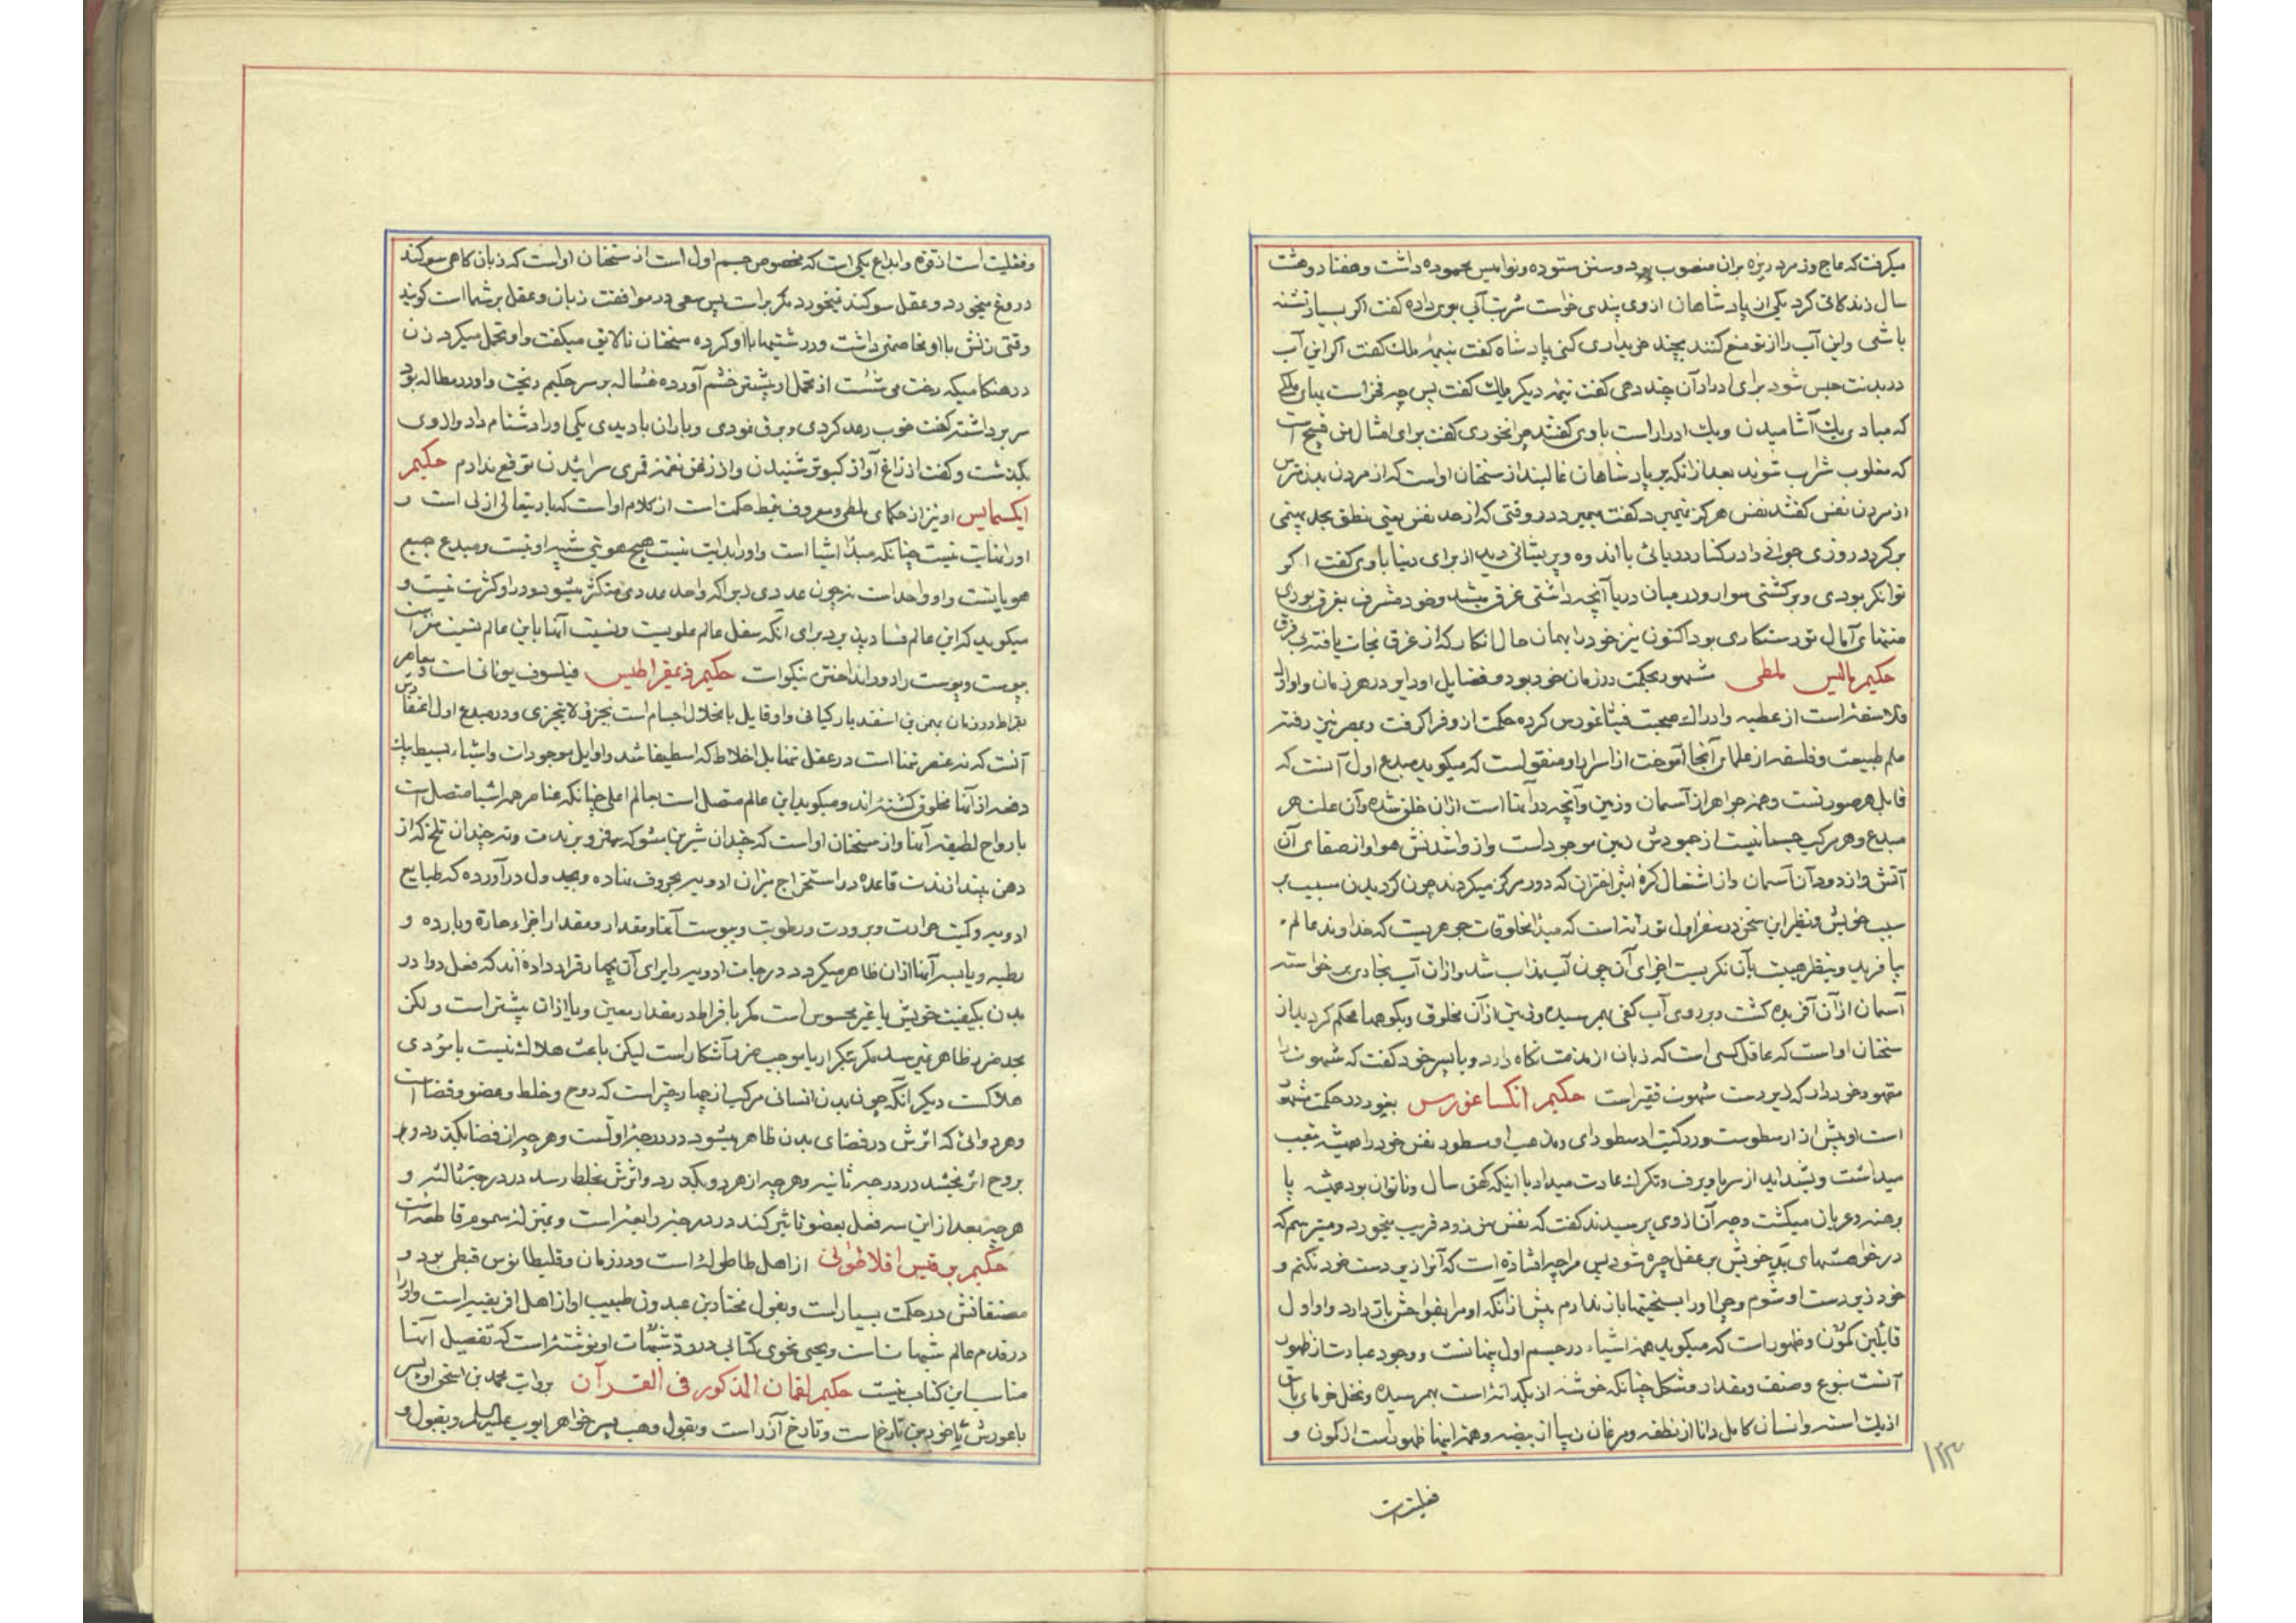 میگرفت که عاج وزمرد ریزه بران منصوب بود و سنن ستوده و نوامیس محموده داشت و هفتاد و هشت
سال زندکانی کرد یکی از پادشاهان از وی پندی خواست شربت آبی بوی داده کفت اکر بسیار تشنه
باشی و این آب را از تو منع کنند بچند خریداری کنی پادشاه کفت بنیمۀ ملک کفت اکر این آب
در بدنت حبس شود برای ادرار آن چند دهی کفت نیمۀ دیکر ملک کفت پس چه فخر است بپای ملکی
که مبادی یک آشامیدن و یک ادرار است باوی کفتند چرا نخوری کفت برای امثال من قبیح است
که مغلوب شراب شوند بعد از انکه بر پادشاهان غالبند از سخنان او است که از مردن بدن مترس
از مردن نفس کفتند نفس هرکز نمیرد کفت میمیرد در وقتی که از حد نفس یعنی نطق بحد بهیمی
برکردد روزی جوانی را در کنار دریائی با اندوه و پریشانی دید از برای دنیا باوی کفت اکر
توانکر بودی و بر کشتی سوار و در میان دریا آنچه داشتی غرق میشد و خود مشرف بغرق بودی
منتهای آمال تو رستکاری بود اکنون نیز خود را بهمان حال انکار که از غرق نجات یافته بی فرق
حکیم ثالیس ملطی مشهور بحکمت در زمان خود بود و فضایل او دایر در هر زمان و او از
فلاسفۀ است از عطیه و ادراک صحبت فیثاغورس کرده حکمت از و فرا کرفت و بمصر نیز رفته
علم طبیعت و فلسفه از علمای آنجا آموخت از اسرار او منقول است که میکوید مبدع اول آنست که
قابل هر صورتست و همه جواهر از آسمان و زمین و آنچه در آنها است از ان خلق شده و آن علت هر
مبدع و هر مرکب جسمانیست از جمودش زمین موجود است و از واشدنش هوا و از صفای آن
آتش و از دود آن آسمان و از اشتعال کرۀ اثیر اختران که دور مرکز میکردند چون کردیدن سبب بر
سبب خویش و نظیر این سخن در سفر اول توراة است که مبدأ مخلوقات جوهریست که خداوند عالم
بیافرید و بنظر هیبت بآن نکریست اجزای آن چون آب مذاب شد و از ان آب بخاری برخواسته
آسمان از آن آفریده کشت و بر روی آب کفی بهم رسیده و زمین از آن مخلوق و بکوهها محکم کردید از
سخنان او است که عاقل کسی است که زبان از مذمت نکاه دارد و با پسر خود کفت که شهوت را
مقهور خود دار که زیردست شهوت فقیر است حکیم انکساغورس بغور در حکمت مشهور
است او پیش از ارسطوست و در کتب ارسطو رای و مذهب او مسطور نفس خود را همیشه بتعب
میداشت و بشداید از سرما و برف و تکرک عادت میداد با اینکه کهن سال و ناتوان بود همیشه پا
برهنه و عریان میکشت وجه آن از وی پرسیدند کفت که نفس من زود فریب میخورد و میترسم که
در خواهشهای بد خویش بر عقل چیره شود پس مرا چه افتاده است که آنرا زیردست خود نکنم و
خود زیردست او شوم و چرا او را بسختیها باز ندارم پیش از آنکه او مرا بفواحش باز دارد و او اول
قایلین کمون و ظهور است که میکوید همه اشیاء در جسم اول پنهانست و وجود عبارت از ظهور
آنست بنوع و صنف و مقدار و شکل چنانکه خوشه از یکدانه است بهم رسیده و نخل خرمای باسق
از یک استه و انسان کامل دانا از نطفه و مرغان زیبا از بیضه و همه اینها ظهور است از کون و
۱۲۳
فعلیت
و فعلیت است از قوه و ابداع یکی است که مخصوص جسم اول است از سخنان او است که زبان کاهی سوکند
دروغ میخورد و عقل سوکند نمیخورد مکر براست پس سعی در موافقت زبان و عقل بر شما است کویند
وقتی زنش با او مخاصمتی داشت و درشتیها با او کرده سخنان نالایق میکفت و او تحمل میکرد زن
در هنکامیکه رخت می شست از تحمل او بیشتر خشم آورده غساله بر سر حکیم ریخت و او در مطالعه بود
سر برداشته کفت خوب رعد کردی و برق نمودی و باران باریدی یکی او را دشنام داد و از وی
بکذشت و کفت از زاغ آواز کبوتر شنیدن و از زغن نغمه قمری سرائیدن توقع ندارم حکیم
ایکسمایس او نیز از حکمای ملطی و معروف بحکمت است از کلام او است که باریتعالی ازلی است و
او را نهایت نیست چنانکه مبدأ اشیا است و او را بدایت نیست هیچ هویتی شبیه او نیست و مبدع جمیع
هویاتست و او واحد است نه چون عددی زیرا که واحد عددی متکثر میشود و در او کثرت نیست و
میکوید که این عالم فساد پذیرد برای آنکه سفل عالم علویست و نسبت آنها باین عالم نسبت مغز است
بپوست و پوست را دور انداختن نیکوست حکیم ذیمقراطیس فیلسوف یونانی است و معاصر
بقراط در زمان بهمن بن اسفندیار کیانی و او قایل بانحلال اجسام است بجزو لا یتجزی و در مبدع اول اعتقادش
آنست که نه عنصر تنها است و نه عقل تنها بل اخلاط که اسطقسات شد و اوایل موجودات و اشیاء بسیط بیک
دفعه از آنها مخلوق کشته اند و میکوید این عالم متصل است بعالم اعلی چنانکه عناصر همه اشیا متصل است
بارواح لطیفه آنها و از سخنان او است که چندان شیرین مشو که بفروبرندت و نه چندان تلخ که از
دهن بیندازندت قاعده در استخراج میزان ادویه بحروف نهاده و بجدول در آورده که طبایع
ادویه و کیفیت حرارت و برودت و رطوبت و یبوست آنها و مقدار و مقدار اجزاء حاره و بارده و
رطبه و یابسه آنها از ان ظاهر میکردد درجات ادویه را برای آن چهار قرار داده اند که فعل دوا در
بدن بکیفیت خویش یا غیر محسوس است مکر بافراط در مقدار معین و یا از ان بیشتر است و لکن
بحد ضرر ظاهر نمیرسد مکر بتکرار یا موجب ضرر آشکار است لیکن باعث هلاک نیست یا مؤدی
هلاکست دیکر آنکه چون بدن انسانی مرکب از چهار چیز است که روح و خلط و عضو و فضا است
و هر دوائی که اثرش در فضای بدن ظاهر میشود در درجه اولست و هر چه از فضا بکذرد و بر
بروح اثر بخشد در درجه ثانیه و هر چه از هر دو بکذرد و اثرش بخلط رسد در درجه ثالثه و
هر چه بعد از این سه فعل بعضو تاثیر کند در درجه رابعه است و تمیز از سموم قاطعه است
حکیم برقیس افلاطونی از اهل طاطوله است و در زمان دقلیطانوس قبطی بود و
مصنفاتش در حکمت بسیار است و بقول مختار بن عبدون طبیب او از اهل افریقیه است و او را
در قدم عالم شبهات است و یحیی نحوی کتابی در رد شبهات او نوشته است که تفصیل آنها
مناسب این کتاب نیست حکیم لقمان المذکور فی القرآن بروایت محمد بن اسحق او پسر
باعورش بن ناخور بن تارخ است و تارخ آزر است و بقول وهب پسر خواهر ایوب علیه السلام و بقول